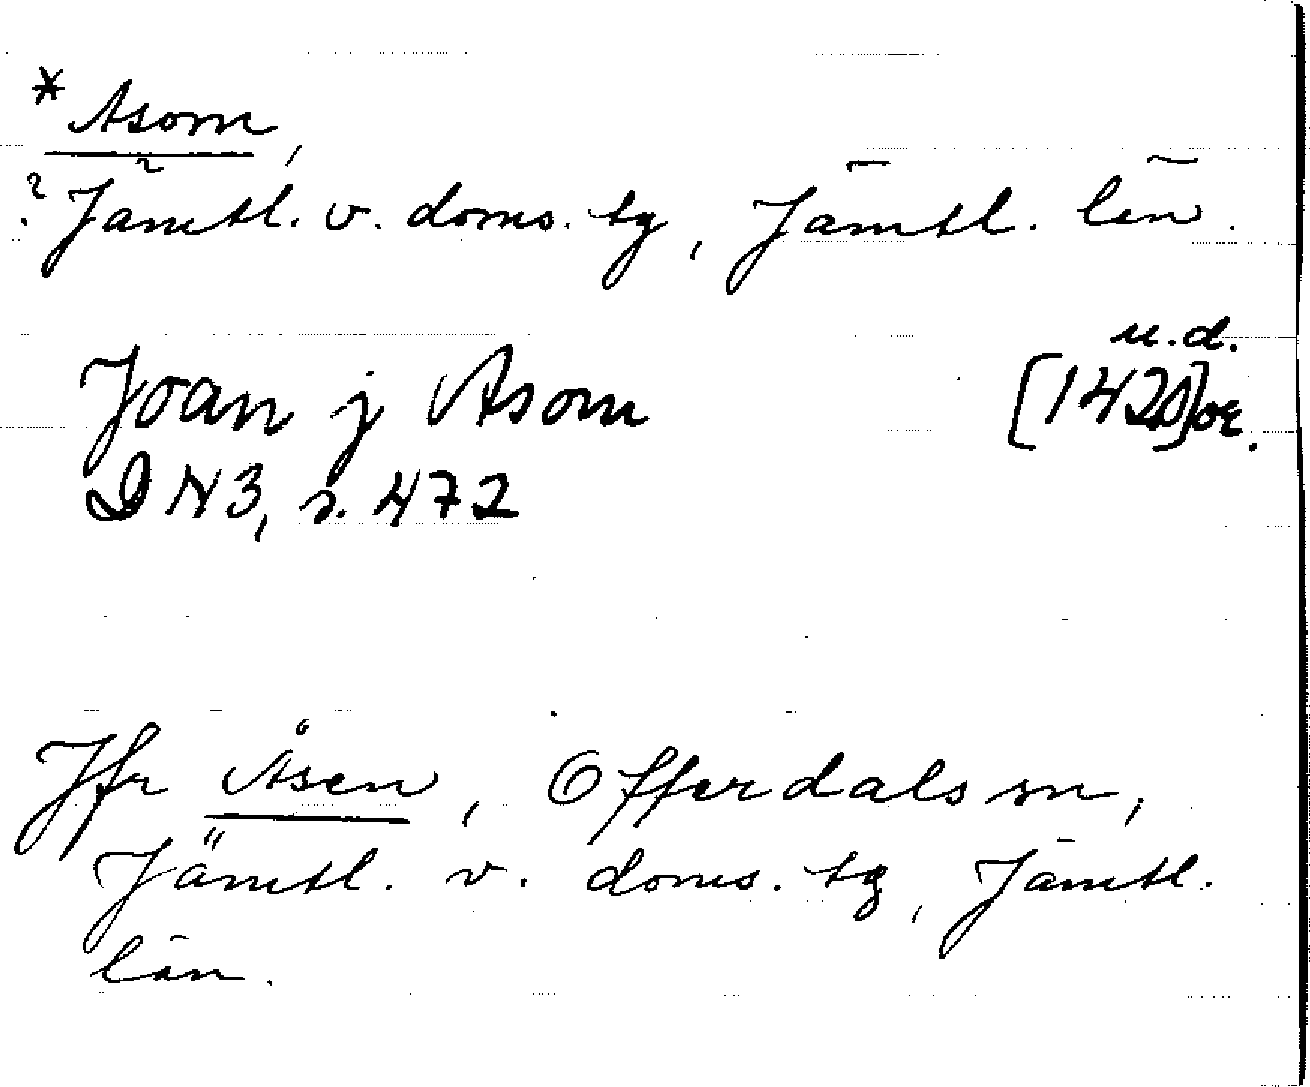 *Asom,
? Jämtl. v. doms. tg, Jämtl. län.
u.d.
Joan j Asom [1420]
DN3, s. 472
Jfr Åsen, Offerdals sn,
Jämtl. v. doms. tg, Jämtl.
län.